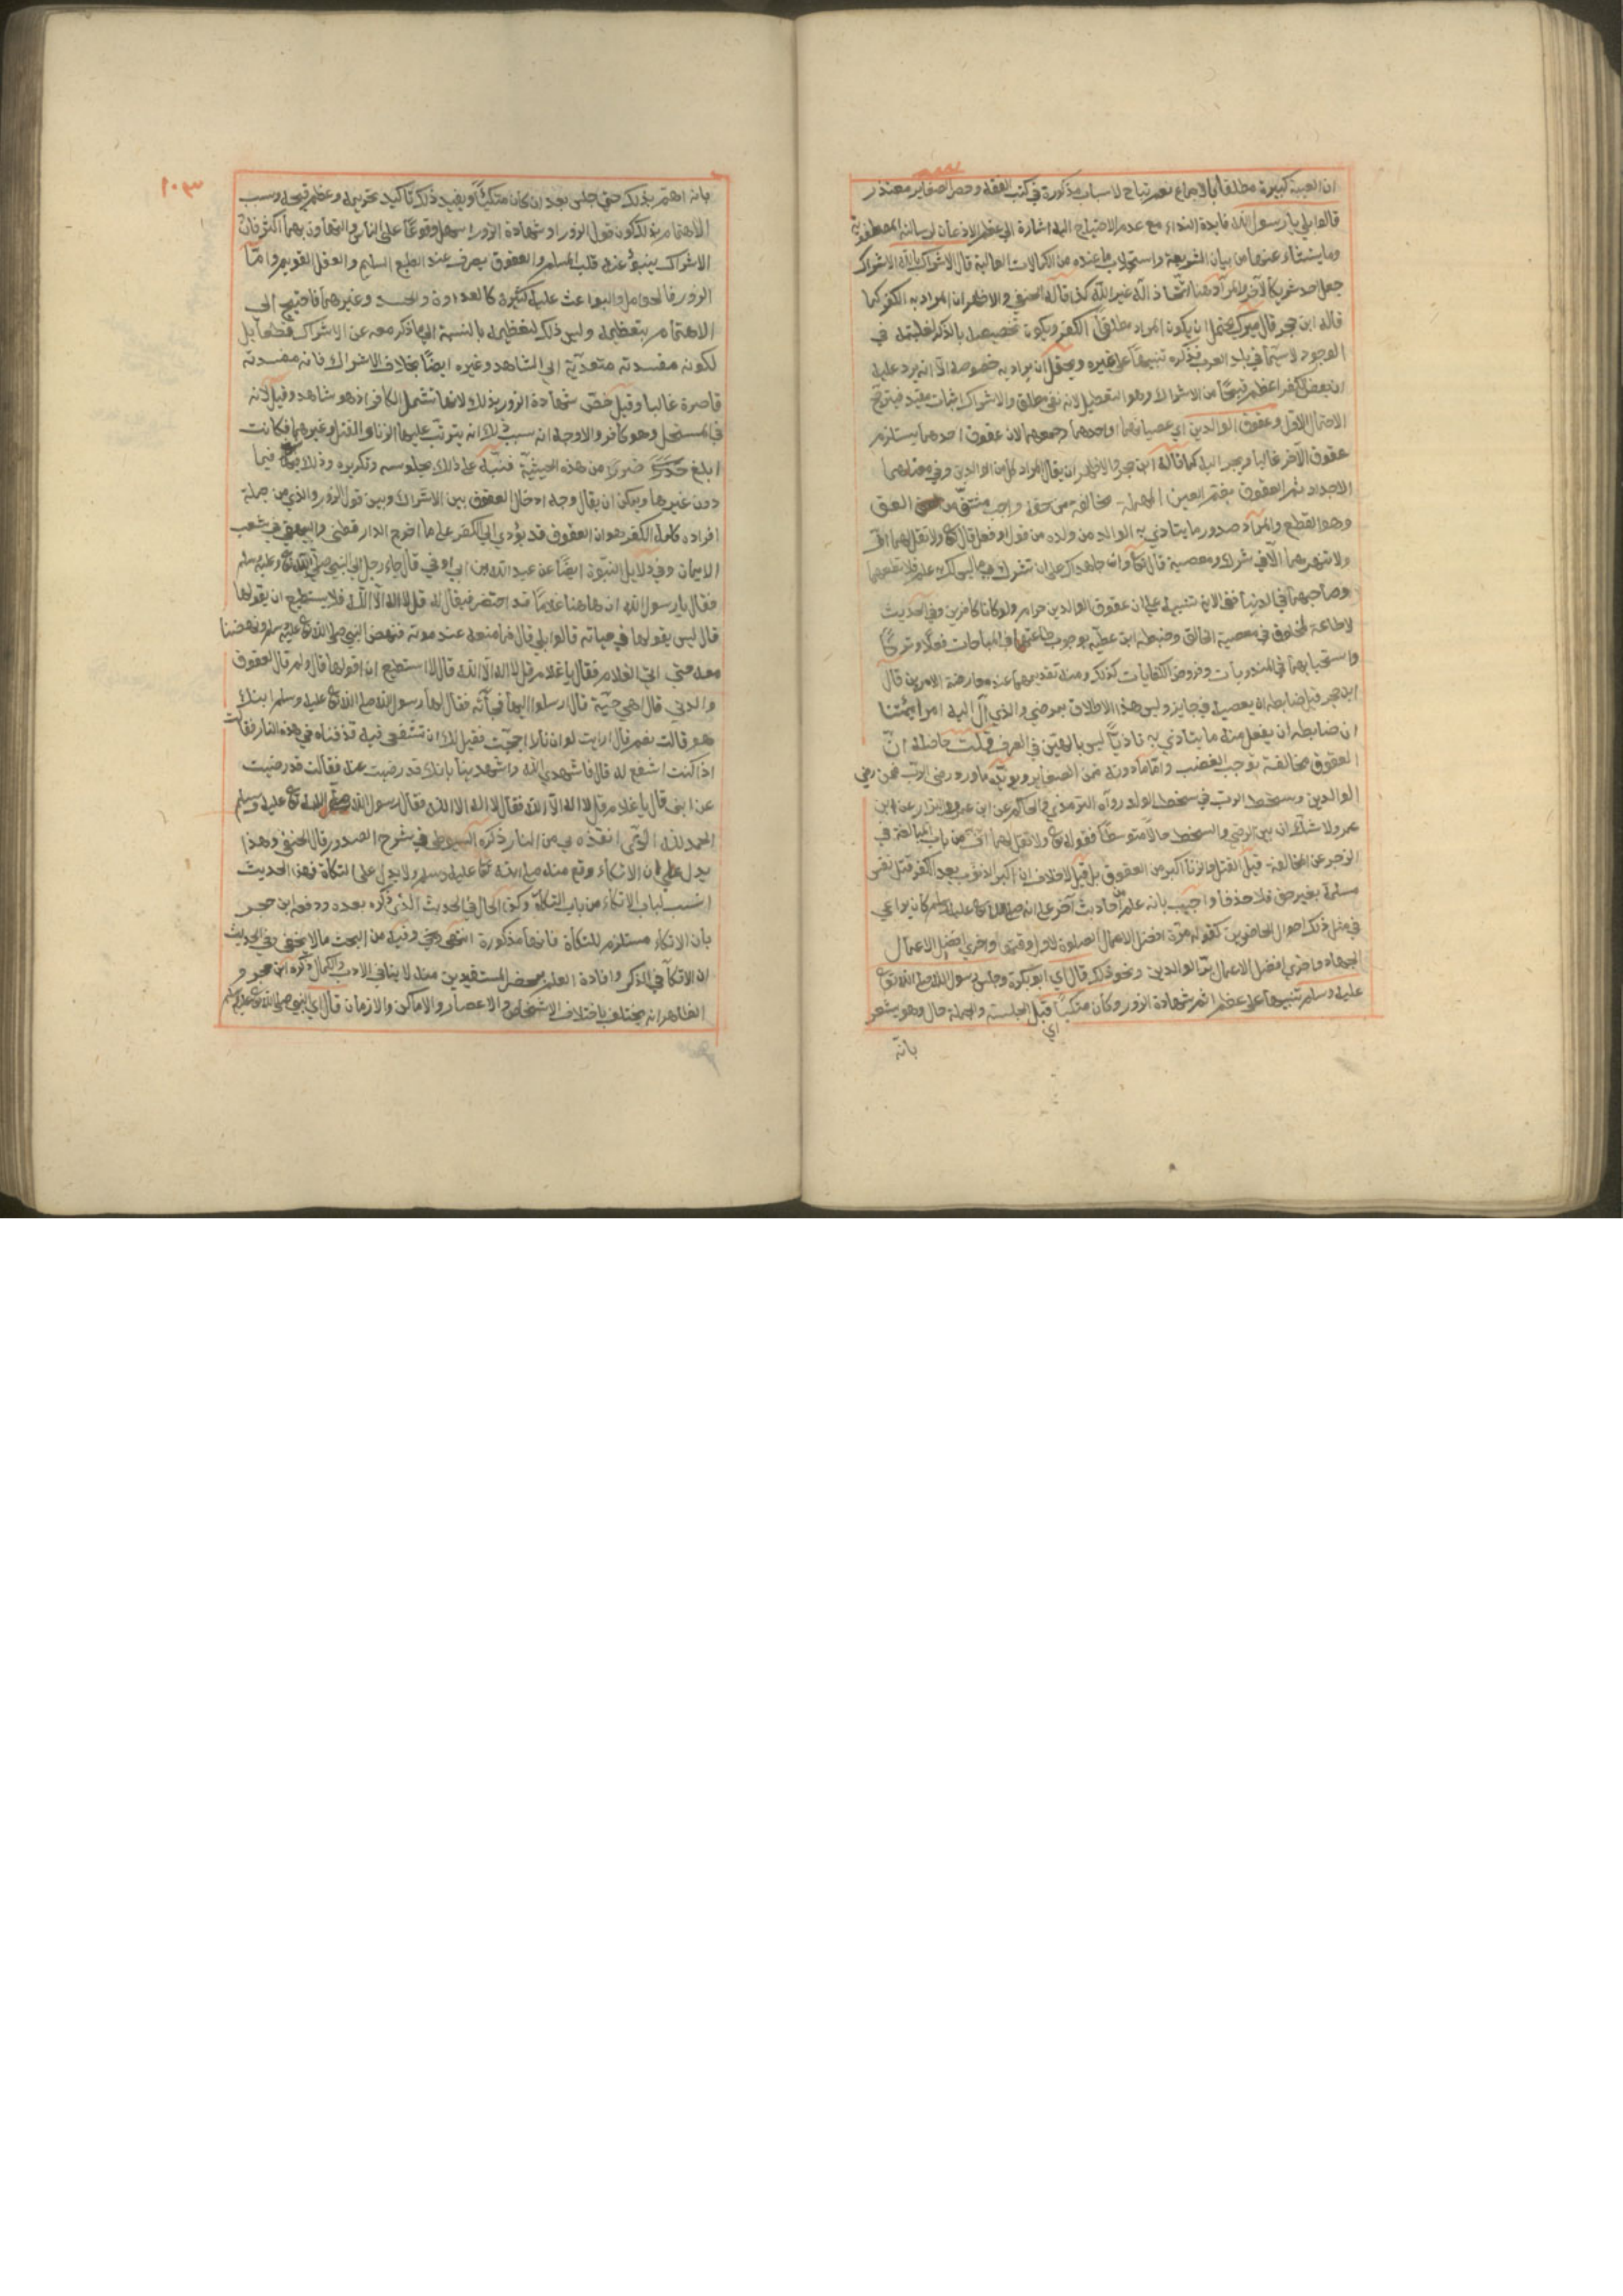 ان الغيبة كبيرة مطلقا بالاجماع نعم تباح لاسباب مذكورة في كتب الفقه وحصر الصغاير متعذر
قالوا بلي يا رسول الله فايدة النداء مع عدم الاحتياج اليه اشارة الي عظم الاذعان لرسالته المصطفوية
وما ينشاء عنها من بيان الشريعة واستجلاب ما عنده من الكمالات العالية قال الاشراك بالله الاشراك
جعل احد شريكا لآخر والمراد هنا اتخاذ اله غير الله كذا قاله الحنفي والاظهر ان المراد به الكفر كما
قاله ابن حجر قال ميرك يحتمل ان يكون المراد مطلق الكفر ويكون تخصيصه بالذكر لغلبته في
الوجود لا سيما في بلد العرب فذكره تنبيها علي غيره ويحتمل ان يراد به خصوصه الا انه يرد عليه
ان بعض الكفر اعظم قبحا من الاشراك وهو التعطيل لانه نفي مطلق والاشراك اثبات مقيد فيترجح
الاحتمال الاول وعقوق الوالدين اي عصيانهما او احدهما وجمعهما لان عقوق احدهما يستلزم
عقوق الآخر غالبا او يجر اليه كما قاله ابن حجر والاظهر ان يقال المراد كل من الوالدين وفي معناهما
الاجداد ثم العقوق بضم العين المهملة مخالفة من حقه واجب مشتق من العق
وهو القطع والمراد صدور ما يتاذي به الوالد من ولده من قول او فعل قال تع ولا تقل لهما اف
ولا تنهرهما الا في شرك او معصية قال تعا وان جاهداك علي ان تشرك بي ما ليس لك به علم فلا تطعهما
وصاحبهما في الدنيا ففي الاية تنبيه علي ان عقوق الوالدين حرام ولو كانا كافرين وفي الحديث
لا طاعة لمخلوق في معصية الخالق وضبطه ابن عطية بوجوب طاعتهما في المباحات فعلا وتركا
واستحبابها في المندوبات وفروض الكفايات كذلك ومنه تقديمهما عند معارضة الامرين قال
ابن حجر قيل ضابطه ان يعصيه في جايز وليس هذا الاطلاق بمرضي والذي آل اليه امر ايمتنا
ان ضابطه ان يفعل منه ما يتاذي به تاذيا ليس بالهين في العرف قلت حاصله ان
العقوق مخالفة توجب الغضب واما ما دونه فمن الصغاير ويؤيده ما ورد رضي الرب في رضي
الوالدين وسخط الرب في سخط الوالد رواه الترمذي والحاكم عن ابن عمرو والبزار عن ابن
عمر ولا شك ان بين الرضي والسخط حالا متوسطا فقوله تع ولا تقل لهما اف من باب المبالغة في
الزجر عن المخالفة قيل القتل والزنا اكبر من العقوق بل قيل لا خلاف ان اكبر الذنوب بعد الكفر قتل نفس
مسلمة بغير حق فلم حذفا واجيب بانه علم من احاديث آخر علي انه صلي الله تع عليه وسلم كان يراعي
في مثل ذلك احوال الحاضرين كقوله مرة افضل الاعمال الصلوة لاول وقتها واخري افضل الاعمال
الجهاد واخري افضل الاعمال بر الوالدين ونحو ذلك قال اي ابو بكرة وجلس رسول الله صلي الله تع
عليه وسلم تنبيها علي عظم اثم شهادة الزور وكان متكئا قبل الجلسة والجملة حال وهو يشعر
اي
بانه
١٠٣
بانه اهتم بذلك حتي جلس بعد ان كان متكئا ويفيد ذلك تاكيد تحريمه وعظم قبحه وسبب
الاهتمام بذلك كون قول الزور او شهادة الزور اسهل وقوعا علي الناس والتهاون بهما اكثر فان
الاشراك ينبو عنه قلب المسلم والعقوق يصرف عند الطبع السليم والعقل القويم واما
الزور فالحوامل والبواعث عليه كثيرة كالعداوة والحسد وغيرهما فاحتيج الي
الاهتمام بتعظيمه وليس ذلك لتعظيمه بالنسبة الي ما ذكر معه من الاشراك قطعا بل
لكونه مفسدته متعدية الي الشاهد وغيره ايضا بخلاف الاشراك فانه مفسدته
قاصرة غالبا وقيل خص شهادة الزور بذلك لانها تشمل الكافر اذ هو شاهد وقيل لانه
في المستحل وهو كافر والاوجه انه سبب ذلك انه يترتب عليها الزنا والقتل وغيرهما فكانت
ابلغ ضررا من هذه الحيثية فنبه علي ذلك بجلوسه وتكريره وذلك فيما
دون غيرها ويمكن ان يقال وجه ادخال العقوق بين الاشراك وبين قول الزور والذي من جملة
افراده كلمة الكفر هو ان العقوق قد يؤدي الي الكفر علي ما اخرج الدارقطني والبيهقي في شعب
الايمان وفي دلايل النبوة ايضا عن عبد الله بن ابي اوفي قال جاء رجل الي النبي صلي الله تع عليه وسلم
فقال يا رسول الله ان هاهنا غلاما قد احتضر فيقال له قل لا اله الا الله فلا يستطيع ان يقولها
قال ليس يقولها في حياته قالوا بلي قال فما منعه عند موته فنهض النبي صلي الله تع عليه وسلم ونهضنا
معه حتي اتي الغلام فقال يا غلام قل لا اله الا الله قال لا استطيع ان اقولها قال ولم قال لعقوق
والدتي قال اهي حية قال ارسلوا اليها فجاته فقال لها رسول الله صلي الله تع عليه وسلم ابنك
هو قالت نعم قال ارايت لو ان نارا اججت فقيل لك ان تشفعي فيه قذفناه في هذه النار فقالت
اذا كنت اشفع له قال فاشهدي الله واشهدينا بانك قد رضيت عنه فقالت قد رضيت
عن ابني قال يا غلام قل لا اله الا الله فقال لا اله الا الله فقال رسول الله صلي الله تع عليه وسلم
الحمد لله الذي انقذه بي من النار ذكره السيوطي في شرح الصدور قال الحنفي وهذا
يدل علي ان الاتكاء وقع منه صلي الله تعا عليه وسلم ولا يدل علي التكاة فهذا الحديث
انسب لباب الاتكاء من باب التكاة وكذا الحال في الحديث الذي ذكره بعده ودفعه ابن حجر
بان الاتكاء مستلزم للتكاة فانها مذكورة انتهي وفيه من البحث ما لا يخفي وفي الحديث
ان الاتكا في الذكر وافادة العلم بمحضر المستفيدين منه لا ينافي الادب والكمال ذكره ابن حجر و
الظاهر انه يختلف باختلاف الاشخاص والاعصار والاماكن والازمان قال اي النبي صلي الله تع عليه وسلم